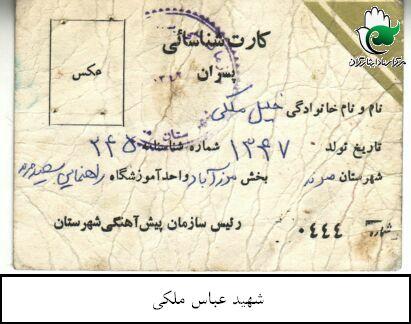 کارت شناسائی
پسران
عکس
نام و نام خانوادگی خلیل ملکی
تاریخ تولد ۱۳۴۷ شماره شناسنامه ۲۴۵
شهرستان بخش مرزآباد واحد آموزشگاه راهنمایی
شماره ۰۴۴۴
رئیس سازمان پیش‌آهنگی شهرستان
شهید عباس ملکی